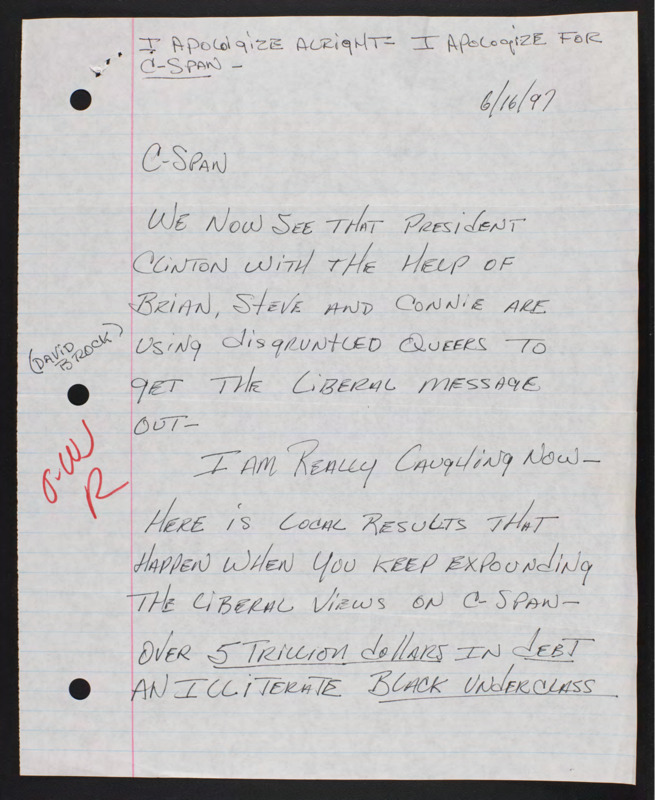 I APOLOIGIZE ALRIGHT- I APOLOGIZE FOR
C-SPAN -
6/16/97
C-SPAN
WE NOW SEE THAT PRESIDENT
CLINTON WITH THE HELP OF
BRIAN, STEVE AND CONNIE ARE
USING DISGRUNTLED QUEERS TO
(DAVID
BROCK)
GET THE LIBERAL MESSAGE
OUT-
I AM REALLY LAUGHING NOW-
R
HERE IS LOCAL RESULTS THAT
HAPPEN WHEN YOU KEEP EXPOUNDING
THE LIBERAL VIEWS ON C-SPAN-
OVER 5 TRILLION DOLLARS IN DEBT
AN ILLITERATE BLACK UNDERCLASS